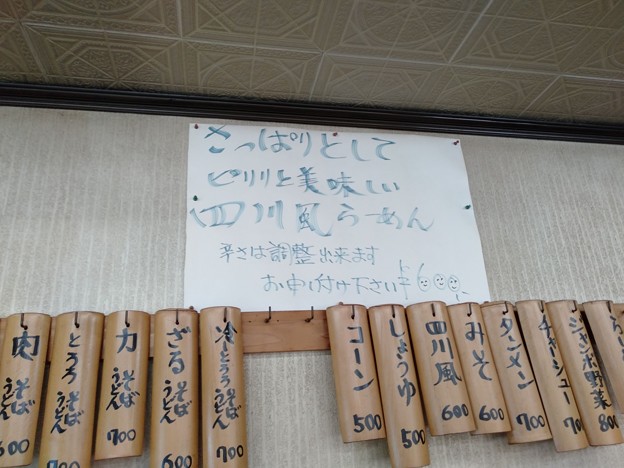 さっぱりとして
ピリリと美味しい
四川風らーめん
辛さは調整出来ます
お申し付け下さい
肉そばうどん 600
とろろそばうどん 700
力そばうどん 700
ざるそばうどん 600
冷とろろそばうどん 700
コーン 500
しょうゆ 500
四川風 600
みそ 600
タンメン 700
チャーシュー 700
ジャンボ野菜 800